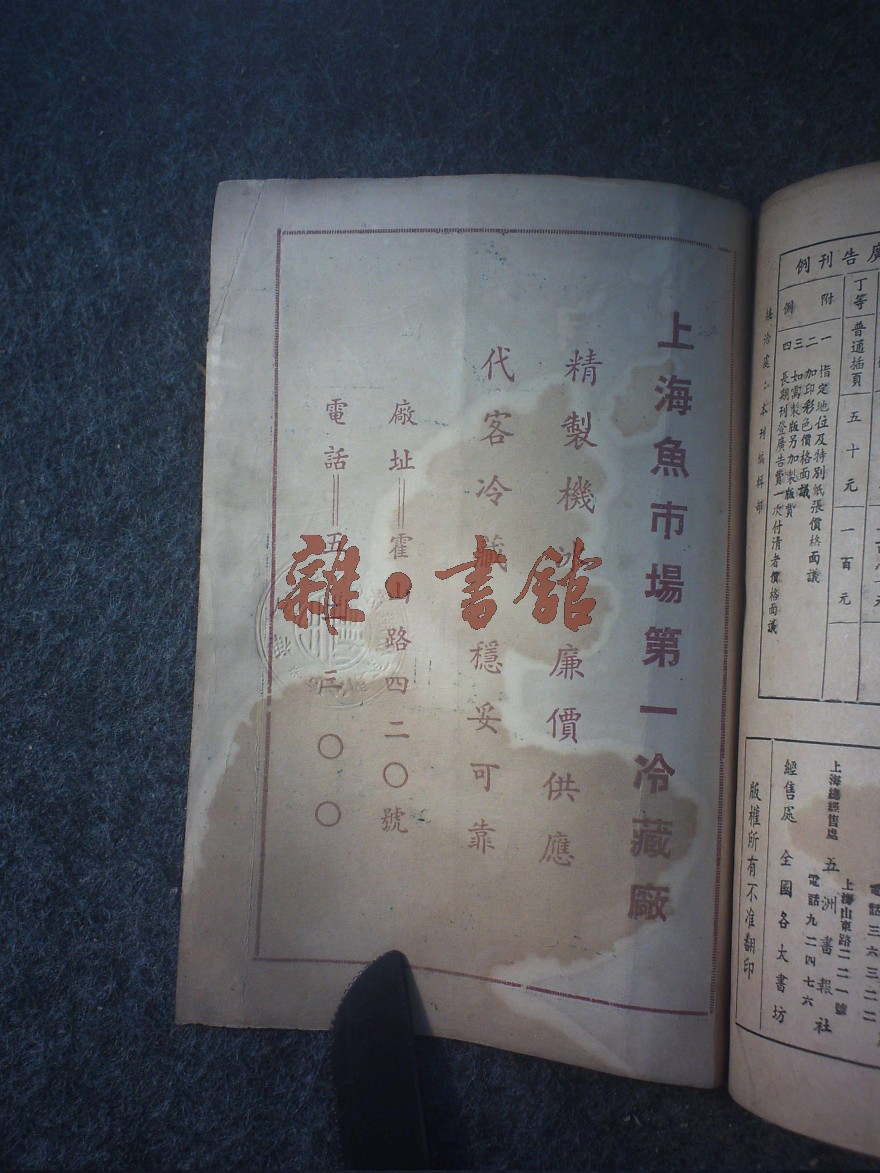 廣告刊例
丁等 普通插頁 五十元 一百元
附 一 指定地位及特別紙張價格面議
二 加印彩色價格面議
三 如需製版另加製版費
例 四 長期刊登廣告費一次付清者價格面議
電話三六三二二
上海山東路二二一號
上海總經售處 五洲書報社
電話九二四七六
經售處 全國各大書坊
版權所有不准翻印
上海魚市場第一冷藏廠
精製機 廉價供應
代客冷藏 穩妥可靠
廠址＝霍山路四二〇號
電話＝五 三〇〇
雜·書館